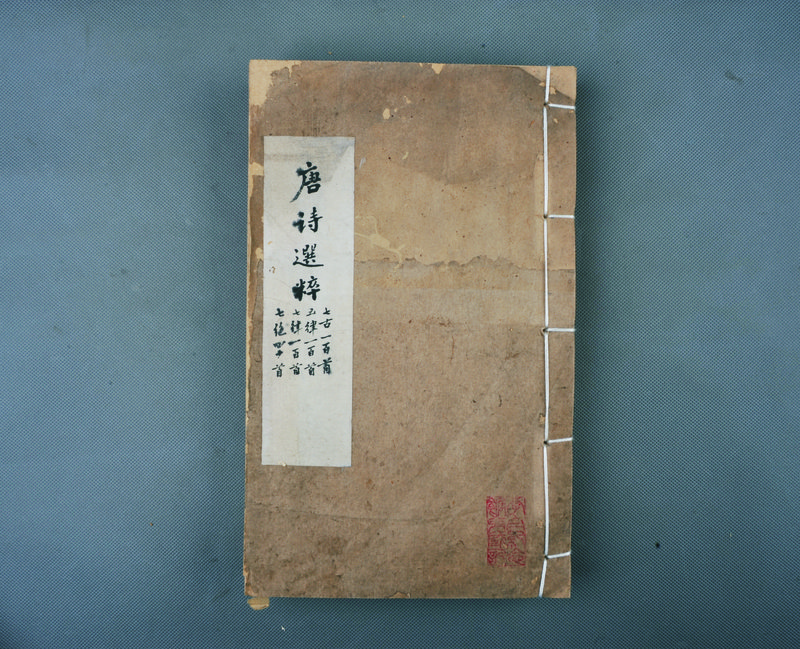 唐诗選粹
七古一百首
五律一百首
七律一百首
七絕四十首